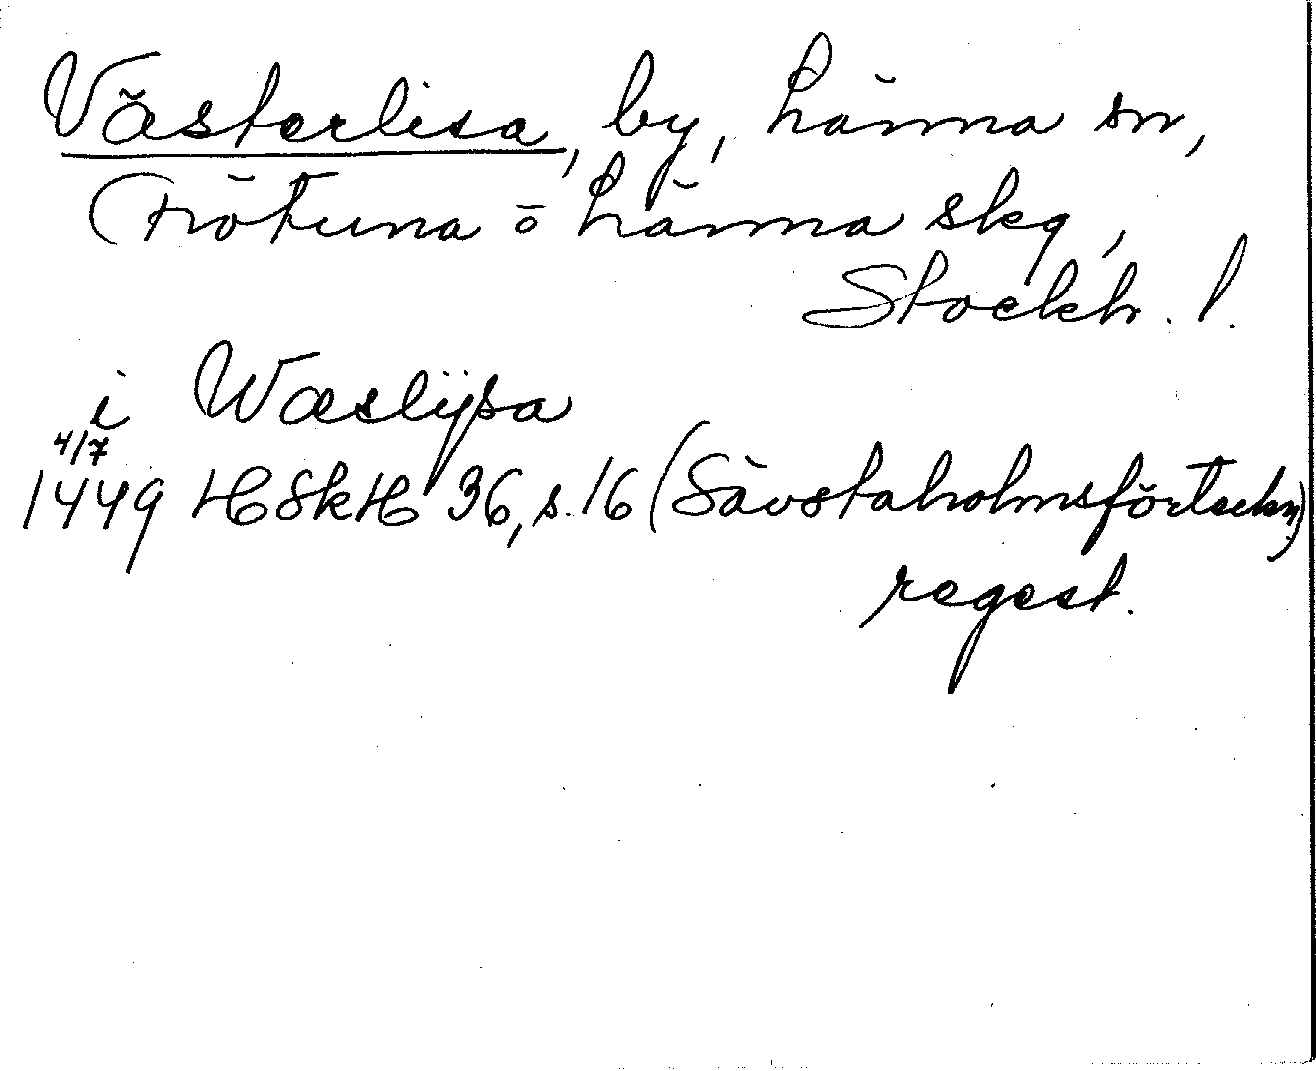 Västerlisa, by, Länna sn,
Frötuna o Länna skg,
Stockh. l.
i Wæslijsa
4/7
1449 HSkH 36, s. 16 (Sävstaholmsförteckn.)
regest.